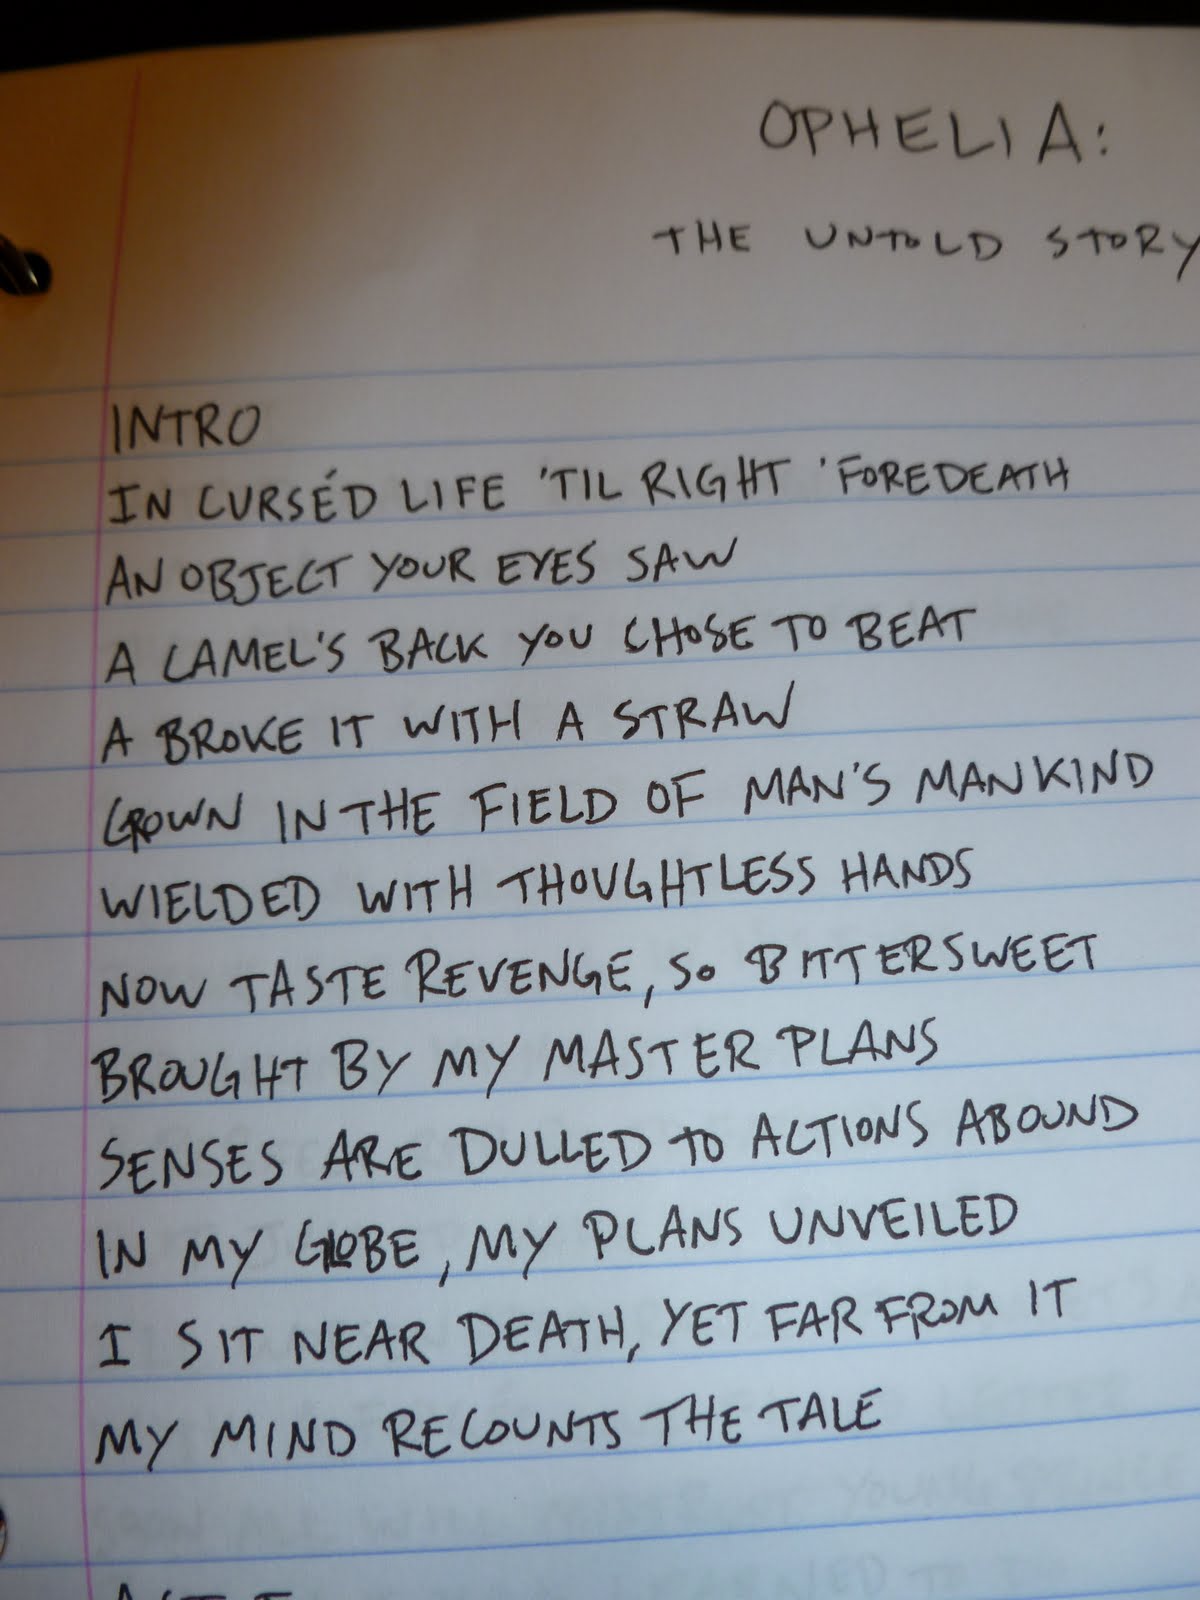 OPHELIA:
THE UNTOLD STORY
INTRO
IN CURSÉD LIFE 'TIL RIGHT 'FOREDEATH
AN OBJECT YOUR EYES SAW
A CAMEL'S BACK YOU CHOSE TO BEAT
A BROKE IT WITH A STRAW
GROWN IN THE FIELD OF MAN'S MANKIND
WIELDED WITH THOUGHTLESS HANDS
NOW TASTE REVENGE, SO BITTERSWEET
BROUGHT BY MY MASTER PLANS
SENSES ARE DULLED TO ACTIONS ABOUND
IN MY GLOBE, MY PLANS UNVEILED
I SIT NEAR DEATH, YET FAR FROM IT
MY MIND RECOUNTS THE TALE